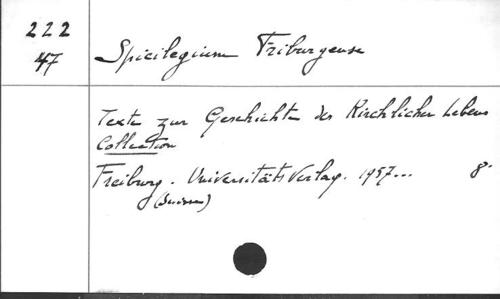 222
47
Spicilegium Friburgense
Texte zur Geschichte des Kirchlichen Lebens
Collection
Freiburg. Universitäts Verlag. 1957... 8°
(Suisse)